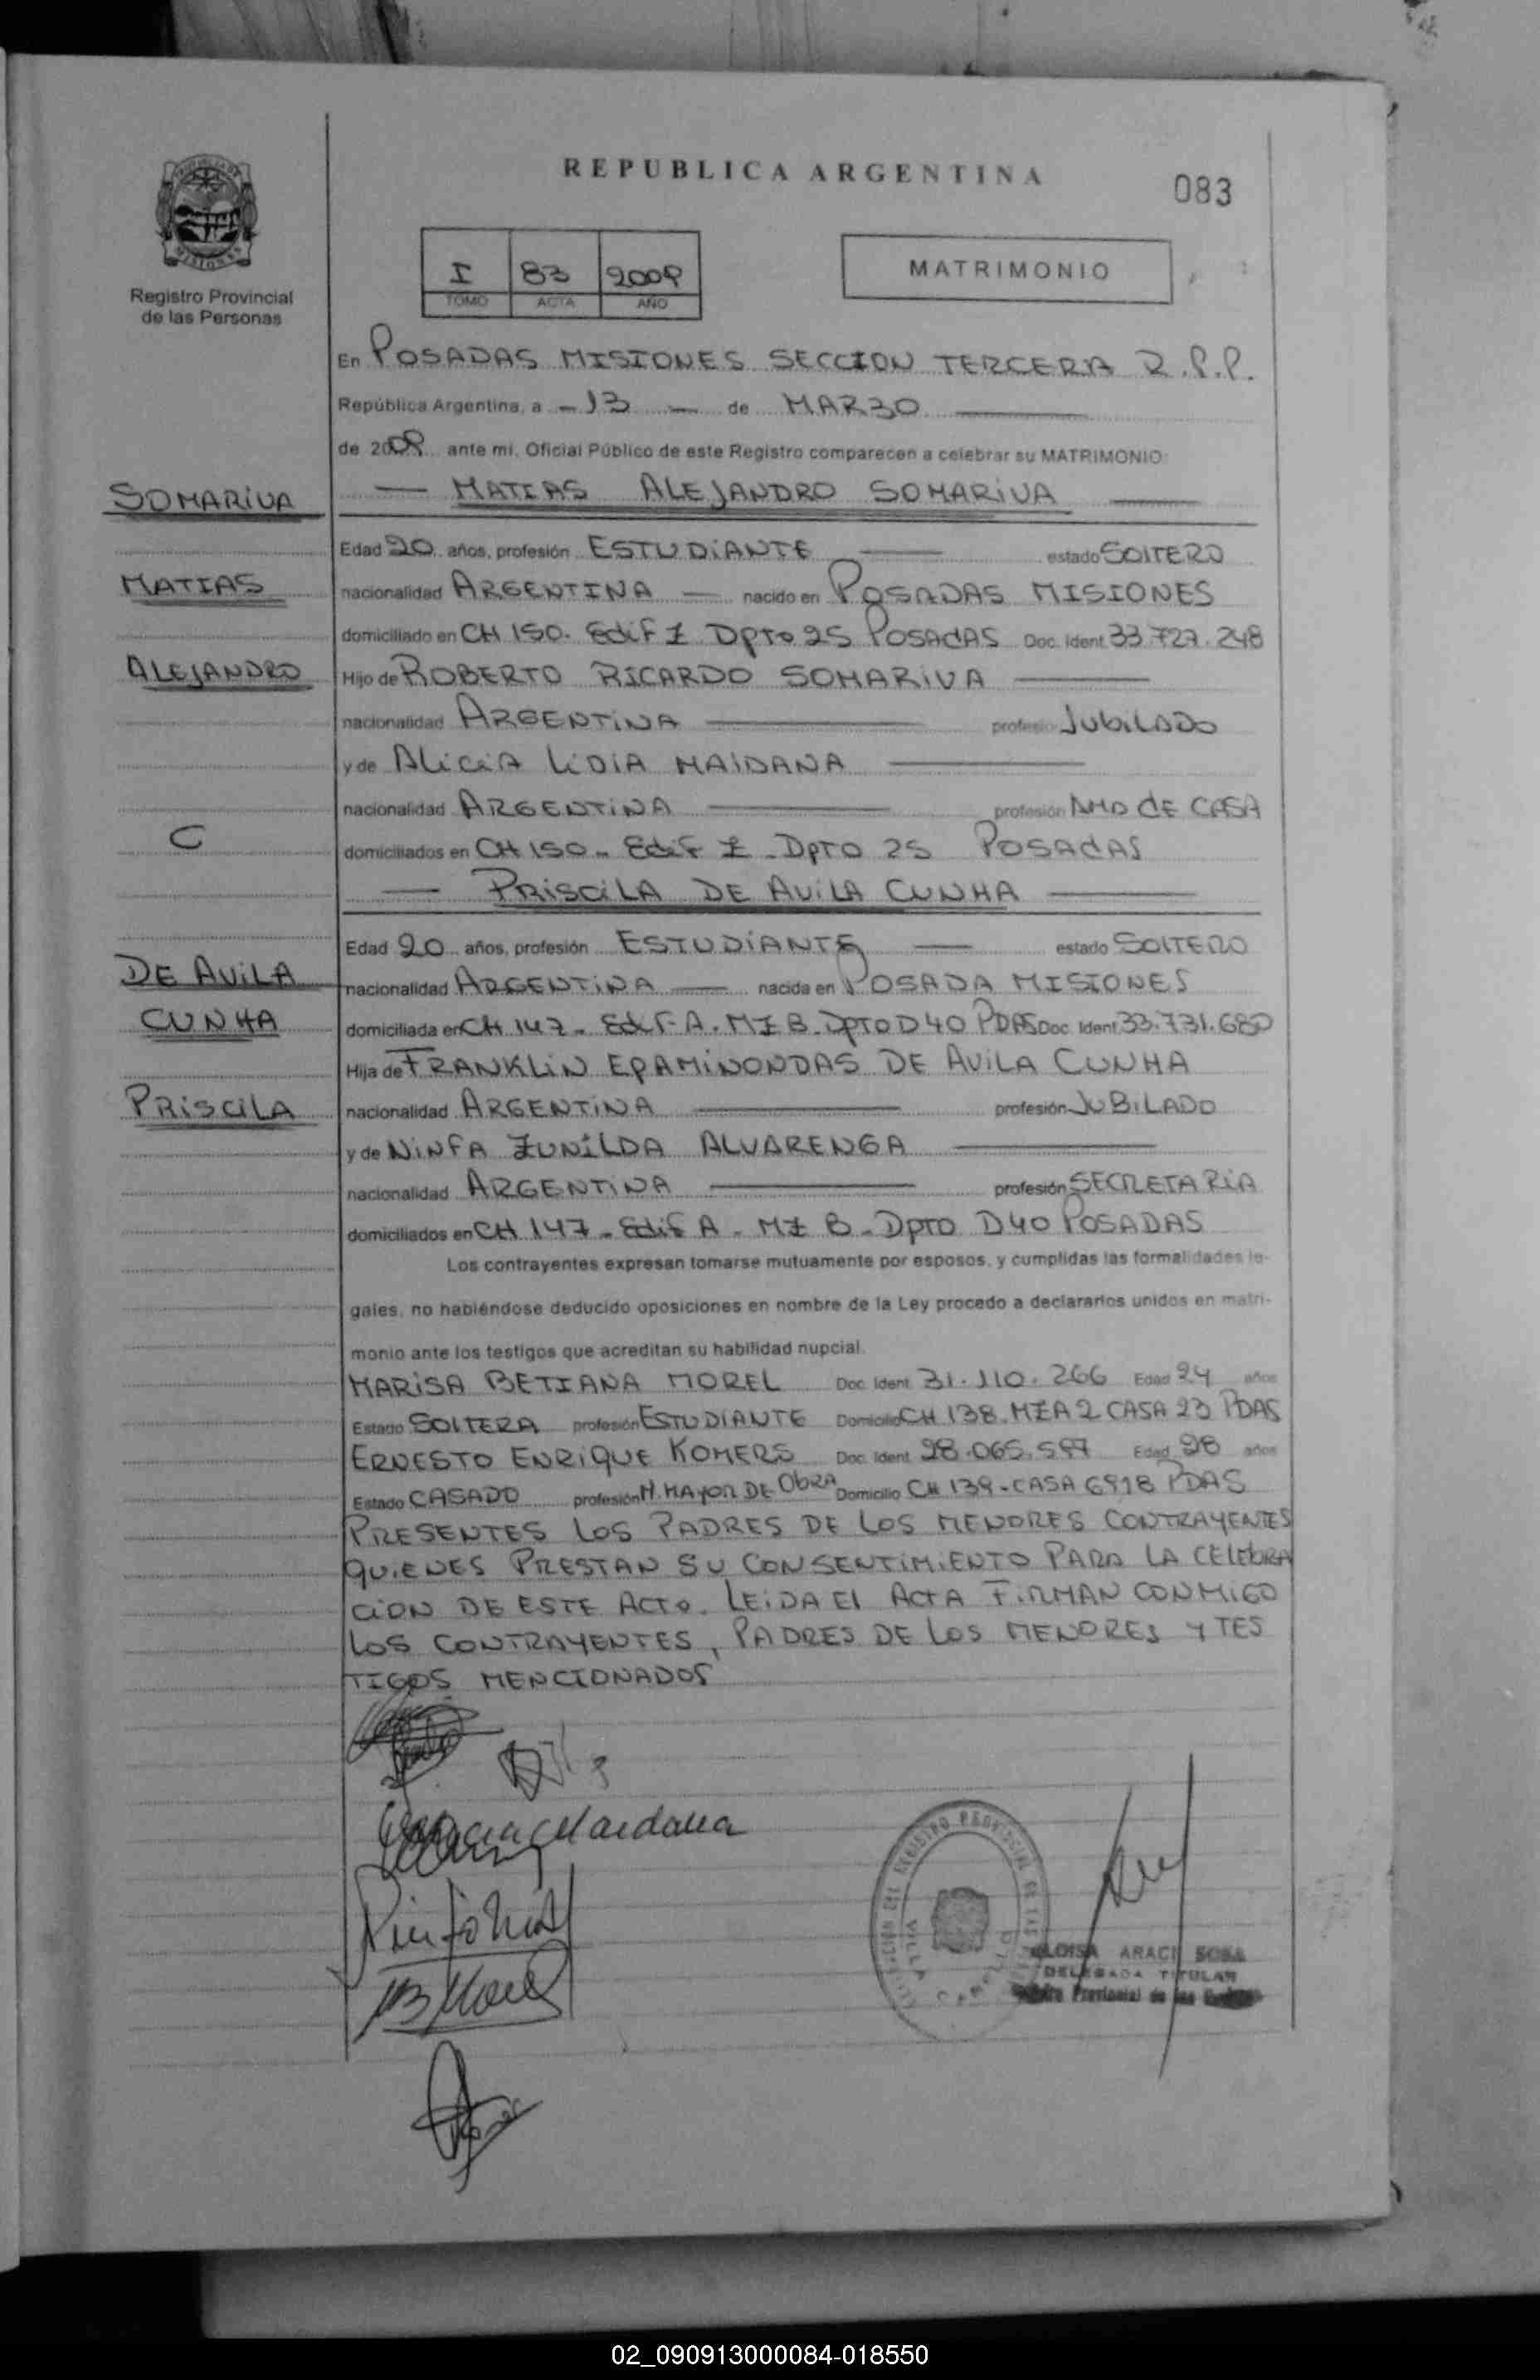 REPUBLICA ARGENTINA
083
Registro Provincial
de las Personas
I 83 2009
TOMO ACTA AÑO
MATRIMONIO
En POSADAS MISIONES SECCION TERCERA R.P.P.
República Argentina, a -13 - de MARZO
de 2009 ante mi, Oficial Público de este Registro comparecen a celebrar su MATRIMONIO:
SOMARIVA
MATIAS ALEJANDRO SOMARIVA
Edad 20 años, profesión ESTUDIANTE estado SOLTERO
MATIAS
nacionalidad ARGENTINA nacido en POSADAS MISIONES
domiciliado en CH 150. Edif I Dpto 25 POSADAS Doc. Ident. 33.727.248
ALEJANDRO
Hijo de ROBERTO RICARDO SOMARIVA
nacionalidad ARGENTINA profesión JUBILADO
y de ALICIA LIDIA MAIDANA
nacionalidad ARGENTINA profesión AMA DE CASA
C
domiciliados en CH 150 - Edif I - DPTO 25 POSADAS
PRISCILA DE AVILA CUNHA
Edad 20 años, profesión ESTUDIANTE estado SOLTERO
DE AVILA
nacionalidad ARGENTINA nacida en POSADA MISIONES
CUNHA
domiciliada en CH 147 - Edif A. MZ B - DPTO D40 PDAS Doc. Ident. 33.731.680
Hija de FRANKLIN EPAMINONDAS DE AVILA CUNHA
PRISCILA
nacionalidad ARGENTINA profesión JUBILADO
y de NINFA ZUNILDA ALVARENGA
nacionalidad ARGENTINA profesión SECRETARIA
domiciliados en CH 147 - Edif A - MZ B - DPTO D40 POSADAS
Los contrayentes expresan tomarse mutuamente por esposos, y cumplidas las formalidades le-
gales, no habiéndose deducido oposiciones en nombre de la Ley procedo a declararlos unidos en matri-
monio ante los testigos que acreditan su habilidad nupcial.
MARISA BETIANA MOREL Doc. Ident. 31.110.266 Edad 24 años
Estado SOLTERA profesión ESTUDIANTE Domicilio CH 138. MZA 2 CASA 23 PDAS
ERNESTO ENRIQUE KOMERS Doc. Ident. 28.065.597 Edad 28 años
Estado CASADO profesión M. MAYOR DE OBRA Domicilio CH 139 - CASA 6918 PDAS
PRESENTES LOS PADRES DE LOS MENORES CONTRAYENTES
QUIENES PRESTAN SU CONSENTIMIENTO PARA LA CELEBRA
CION DE ESTE ACTO. LEIDA EL ACTA FIRMAN CONMIGO
LOS CONTRAYENTES, PADRES DE LOS MENORES Y TES
TIGOS MENCIONADOS
Maidana
ARACI SOSA
DELEGADA TITULAR
Provincial de las
02_090913000084-018550